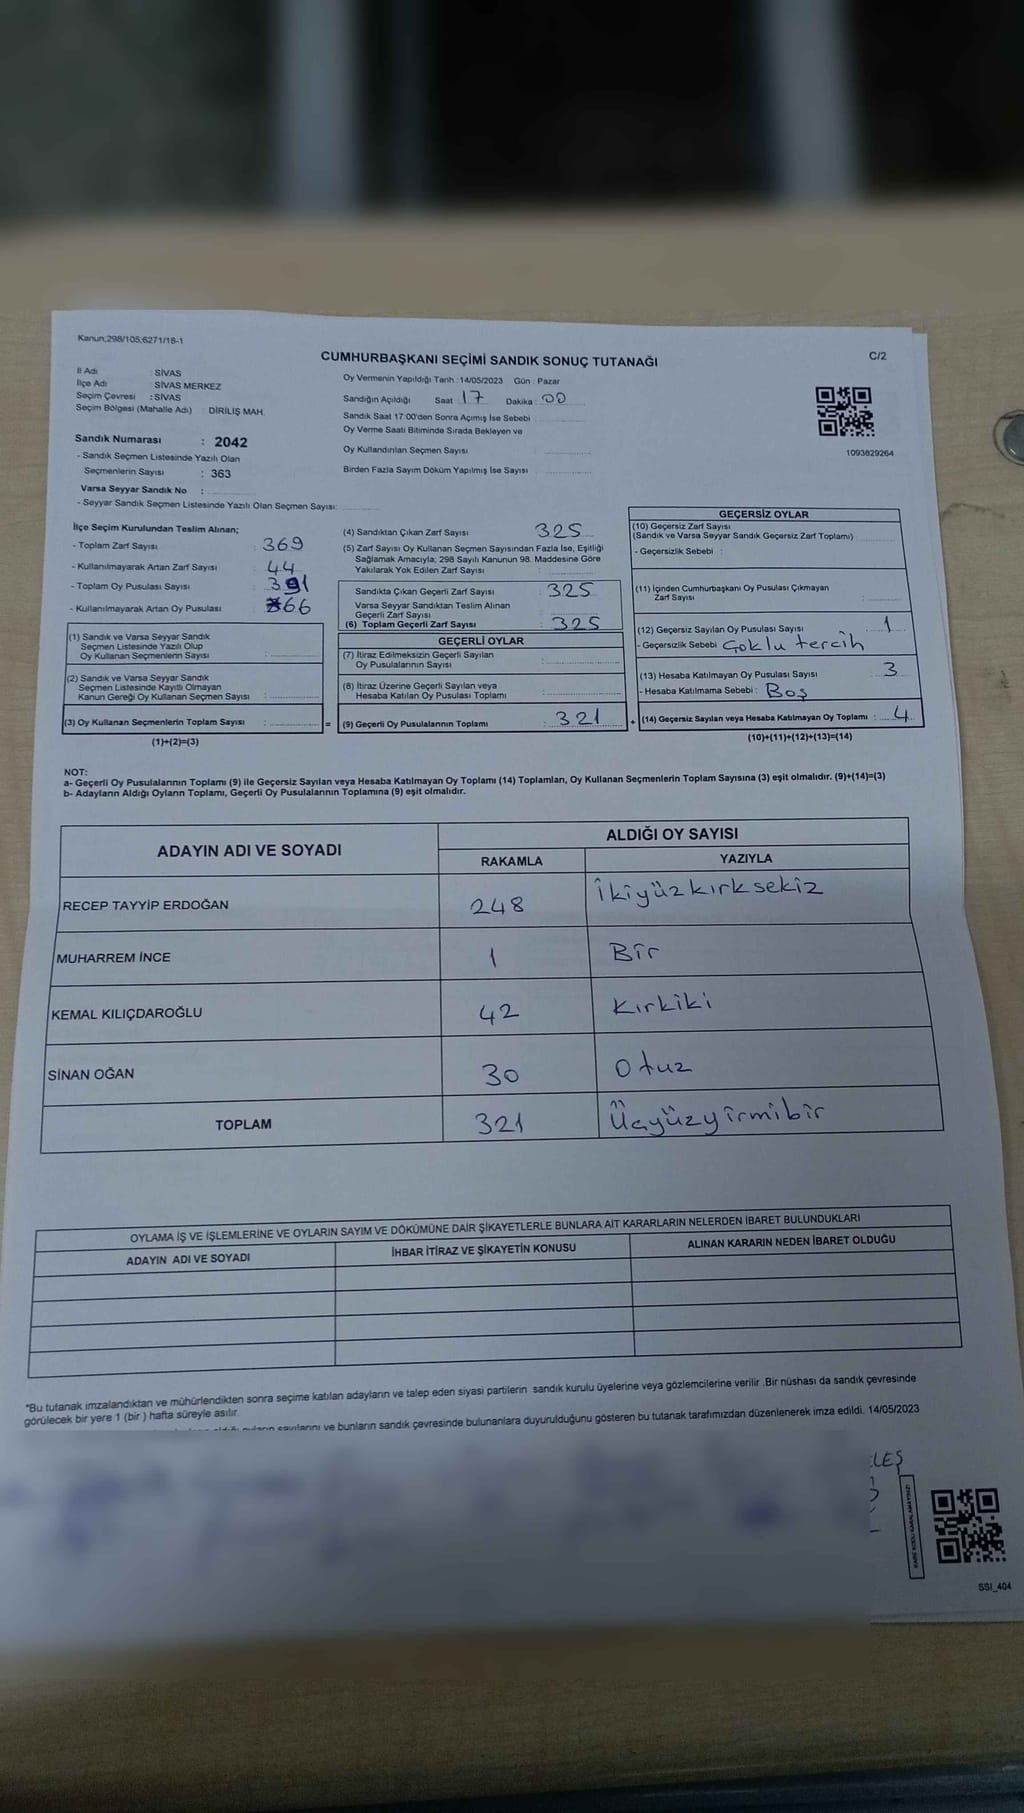 Kanun;298/105;6271/18-1
CUMHURBAŞKANI SEÇİMİ SANDIK SONUÇ TUTANAĞI
C/2
İl Adı : SİVAS
İlçe Adı : SİVAS MERKEZ
Seçim Çevresi : SİVAS
Seçim Bölgesi (Mahalle Adı) : DİRİLİŞ MAH.
Sandık Numarası : 2042
- Sandık Seçmen Listesinde Yazılı Olan
Seçmenlerin Sayısı : 363
Varsa Seyyar Sandık No :
- Seyyar Sandık Seçmen Listesinde Yazılı Olan Seçmen Sayısı:
Oy Vermenin Yapıldığı Tarih : 14/05/2023 Gün : Pazar
Sandığın Açıldığı Saat : 17 Dakika : 00
Sandık Saat 17:00'den Sonra Açımış İse Sebebi :
Oy Verme Saati Bitiminde Sırada Bekleyen ve
Oy Kullandırılan Seçmen Sayısı
Birden Fazla Sayım Döküm Yapılmış İse Sayısı
1093829264
İlçe Seçim Kurulundan Teslim Alınan;
- Toplam Zarf Sayısı : 369
- Kullanılmayarak Artan Zarf Sayısı : 44
- Toplam Oy Pusulası Sayısı : 391
- Kullanılmayarak Artan Oy Pusulası : 66
(1) Sandık ve Varsa Seyyar Sandık
Seçmen Listesinde Yazılı Olup
Oy Kullanan Seçmenlerin Sayısı :
(2) Sandık ve Varsa Seyyar Sandık
Seçmen Listesinde Kayıtlı Olmayan
Kanun Gereği Oy Kullanan Seçmen Sayısı :
(3) Oy Kullanan Seçmenlerin Toplam Sayısı : =
(1)+(2)=(3)
(4) Sandıktan Çıkan Zarf Sayısı : 325
(5) Zarf Sayısı Oy Kullanan Seçmen Sayısından Fazla İse, Eşitliği
Sağlamak Amacıyla, 298 Sayılı Kanunun 98. Maddesine Göre
Yakılarak Yok Edilen Zarf Sayısı :
Sandıkta Çıkan Geçerli Zarf Sayısı : 325
Varsa Seyyar Sandıktan Teslim Alınan
Geçerli Zarf Sayısı :
(6) Toplam Geçerli Zarf Sayısı : 325
GEÇERLİ OYLAR
(7) İtiraz Edilmeksizin Geçerli Sayılan
Oy Pusulalarının Sayısı :
(8) İtiraz Üzerine Geçerli Sayılan veya
Hesaba Katılan Oy Pusulası Toplamı :
(9) Geçerli Oy Pusulalarının Toplamı : 321 +
GEÇERSİZ OYLAR
(10) Geçersiz Zarf Sayısı
(Sandık ve Varsa Seyyar Sandık Geçersiz Zarf Toplamı) :
- Geçersizlik Sebebi :
(11) İçinden Cumhurbaşkanı Oy Pusulası Çıkmayan
Zarf Sayısı :
(12) Geçersiz Sayılan Oy Pusulası Sayısı : 1
- Geçersizlik Sebebi : Çoklu tercih
(13) Hesaba Katılmayan Oy Pusulası Sayısı : 3
- Hesaba Katılmama Sebebi : Boş
(14) Geçersiz Sayılan veya Hesaba Katılmayan Oy Toplamı : 4
(10)+(11)+(12)+(13)=(14)
NOT:
a- Geçerli Oy Pusulalarının Toplamı (9) ile Geçersiz Sayılan veya Hesaba Katılmayan Oy Toplamı (14) Toplamları, Oy Kullanan Seçmenlerin Toplam Sayısına (3) eşit olmalıdır. (9)+(14)=(3)
b- Adayların Aldığı Oyların Toplamı, Geçerli Oy Pusulalarının Toplamına (9) eşit olmalıdır.
ADAYIN ADI VE SOYADI ALDIĞI OY SAYISI
RAKAMLA YAZIYLA
RECEP TAYYİP ERDOĞAN 248 İkiyüzkırksekiz
MUHARREM İNCE 1 Bir
KEMAL KILIÇDAROĞLU 42 Kırkiki
SİNAN OĞAN 30 Otuz
TOPLAM 321 Üçyüzyirmibir
OYLAMA İŞ VE İŞLEMLERİNE VE OYLARIN SAYIM VE DÖKÜMÜNE DAİR ŞİKAYETLERLE BUNLARA AİT KARARLARIN NELERDEN İBARET BULUNDUKLARI
ADAYIN ADI VE SOYADI İHBAR İTİRAZ VE ŞİKAYETİN KONUSU ALINAN KARARIN NEDEN İBARET OLDUĞU
*Bu tutanak imzalandıktan ve mühürlendikten sonra seçime katılan adayların ve talep eden siyasi partilerin sandık kurulu üyelerine veya gözlemcilerine verilir .Bir nüshası da sandık çevresinde
görülecek bir yere 1 (bir ) hafta süreyle asılır.
sayılarını ve bunların sandık çevresinde bulunanlara duyurulduğunu gösteren bu tutanak tarafımızdan düzenlenerek imza edildi. 14/05/2023
SSI_404